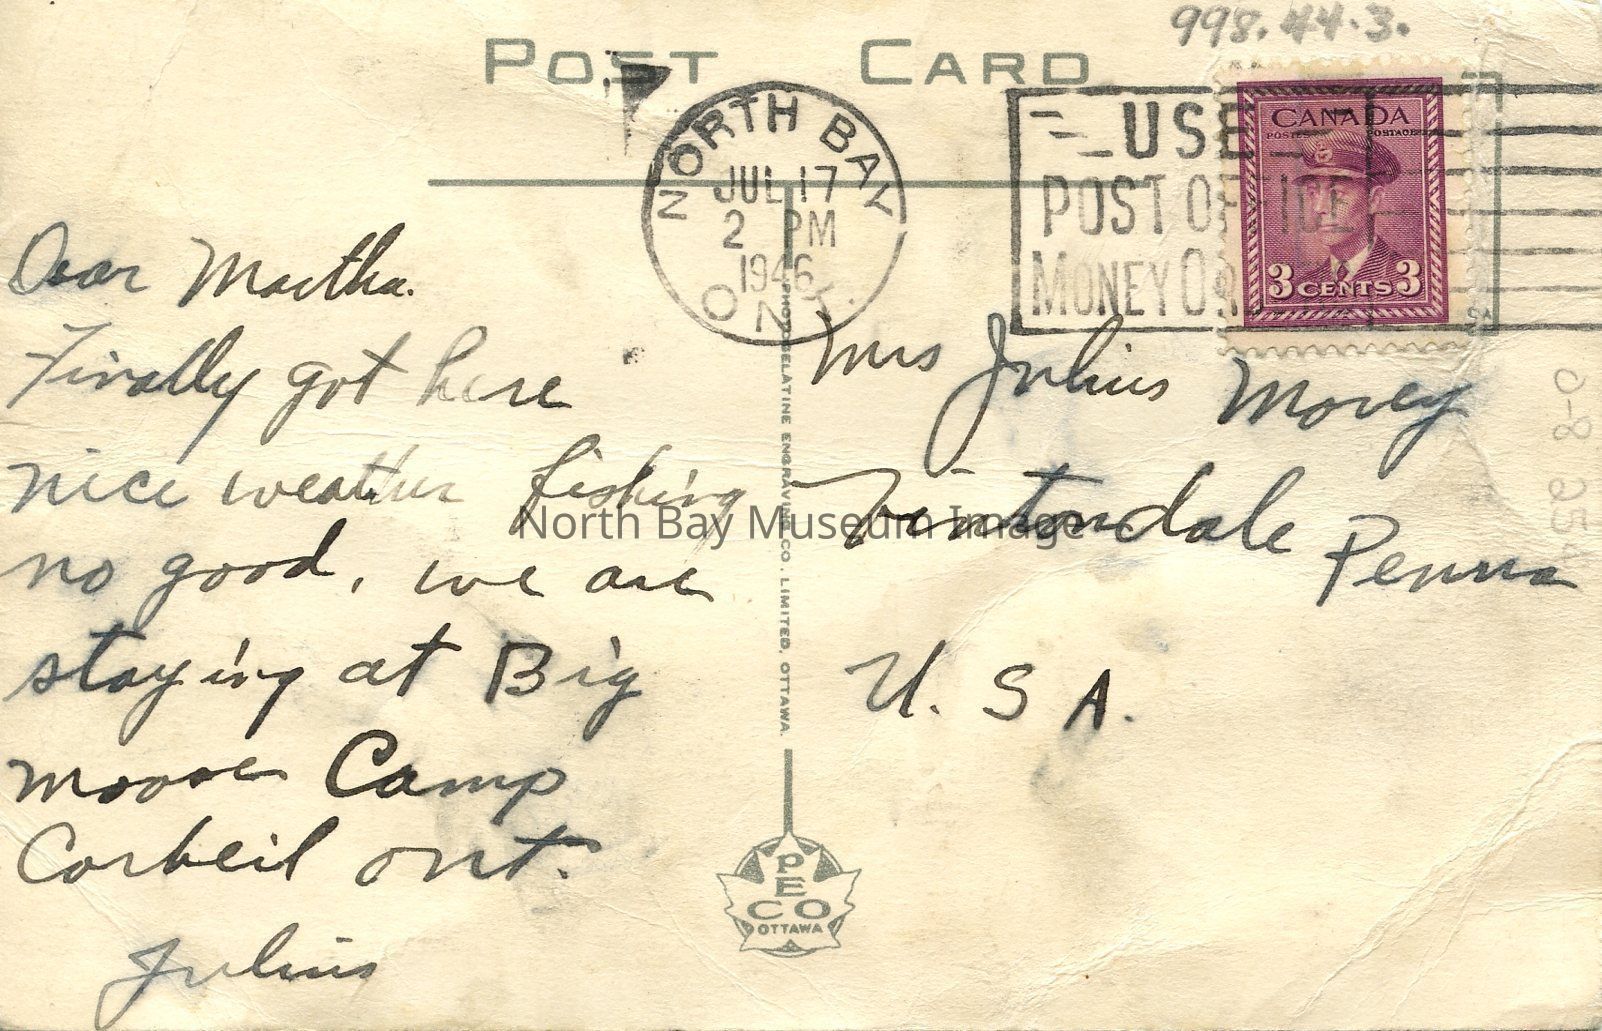 998.44.3.
POST CARD
NORTH BAY
JUL 17
2 PM
1946
ONT.
USE
POST OFFICE
MONEY
CANADA
POSTES POSTAGE
3 CENTS 3
Dear Martha.
Finally got here
nice weather fishing
no good, we are
staying at Big
moose Camp
Corbeil ont.
Julius
Mrs Julius Morey
Vintondale Penna
U. S A.
PHOTOGELATINE ENGRAVING CO. LIMITED, OTTAWA.
PECO
OTTAWA
North Bay Museum Image